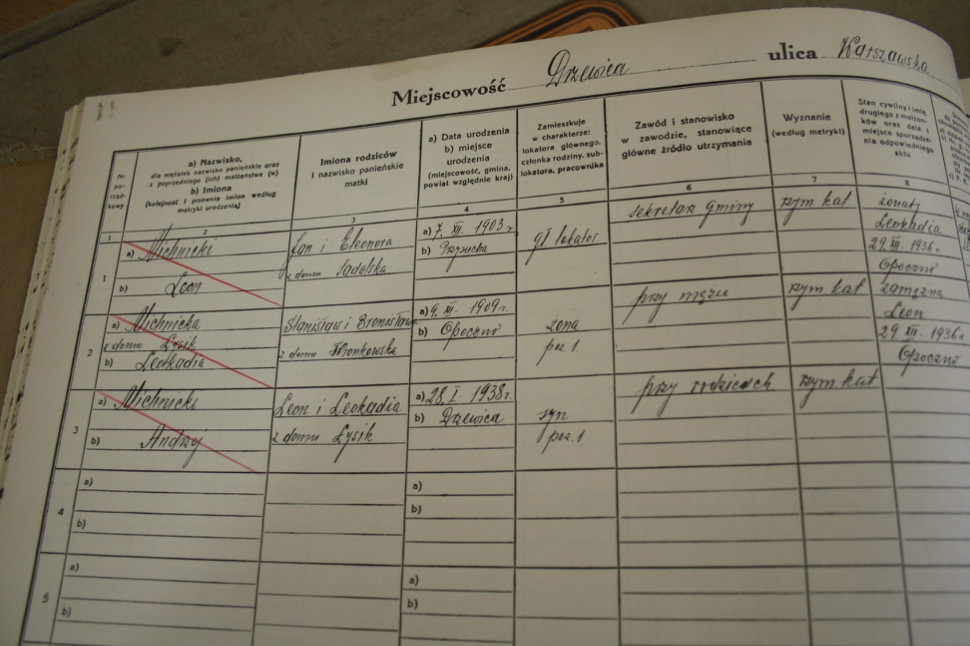 Miejscowość Drzewica ulica Warszawska
Nr.
po-
rząd-
kowy
a) Nazwisko,
dla mężatek nazwisko panieńskie oraz
z poprzedniego (ich) małżeństwa (w)
b) Imiona
(kolejność i pisownia imion według
metryki urodzenia)
Imiona rodziców
i nazwisko panieńskie
matki
a) Data urodzenia
b) miejsce
urodzenia
(miejscowość, gmina,
powiat względnie kraj)
Zamieszkuje
w charakterze:
lokatora głównego,
członka rodziny, sub-
lokatora, pracownika
Zawód i stanowisko
w zawodzie, stanowiące
główne źródło utrzymania
Wyznanie
(według metryki)
Stan cywilny i imię
drugiego z małżon-
ków oraz data i
miejsce sporządze-
nia odpowiedniego
aktu
1 2 3 4 5 6 7 8
1
a) Michnicki
b) Leon
Jan i Eleonora
z domu
a) 7. XII. 1903 r.
b)
gł. lokator
sekretarz Gminy
rzym kat
żonaty
Leokadia
29. XII. 1936 r.
Opoczno
2
a) Michnicka
z domu Łysik
b) Leokadia
Stanisław i Bronisława
z domu
a) 9. XII. 1909 r.
b) Opoczno
żona
poz. 1.
przy mężu
rzym kat
zamężna
Leon
29 XII. 1936 r.
Opoczno
3
a) Michnicki
b) Andrzej
Leon i Leokadia
z domu Łysik
a) 28. I. 1938 r.
b) Drzewica
syn
poz. 1.
przy rodzicach
rzym kat
4
a)
b)
a)
b)
5
a)
b)
a)
b)